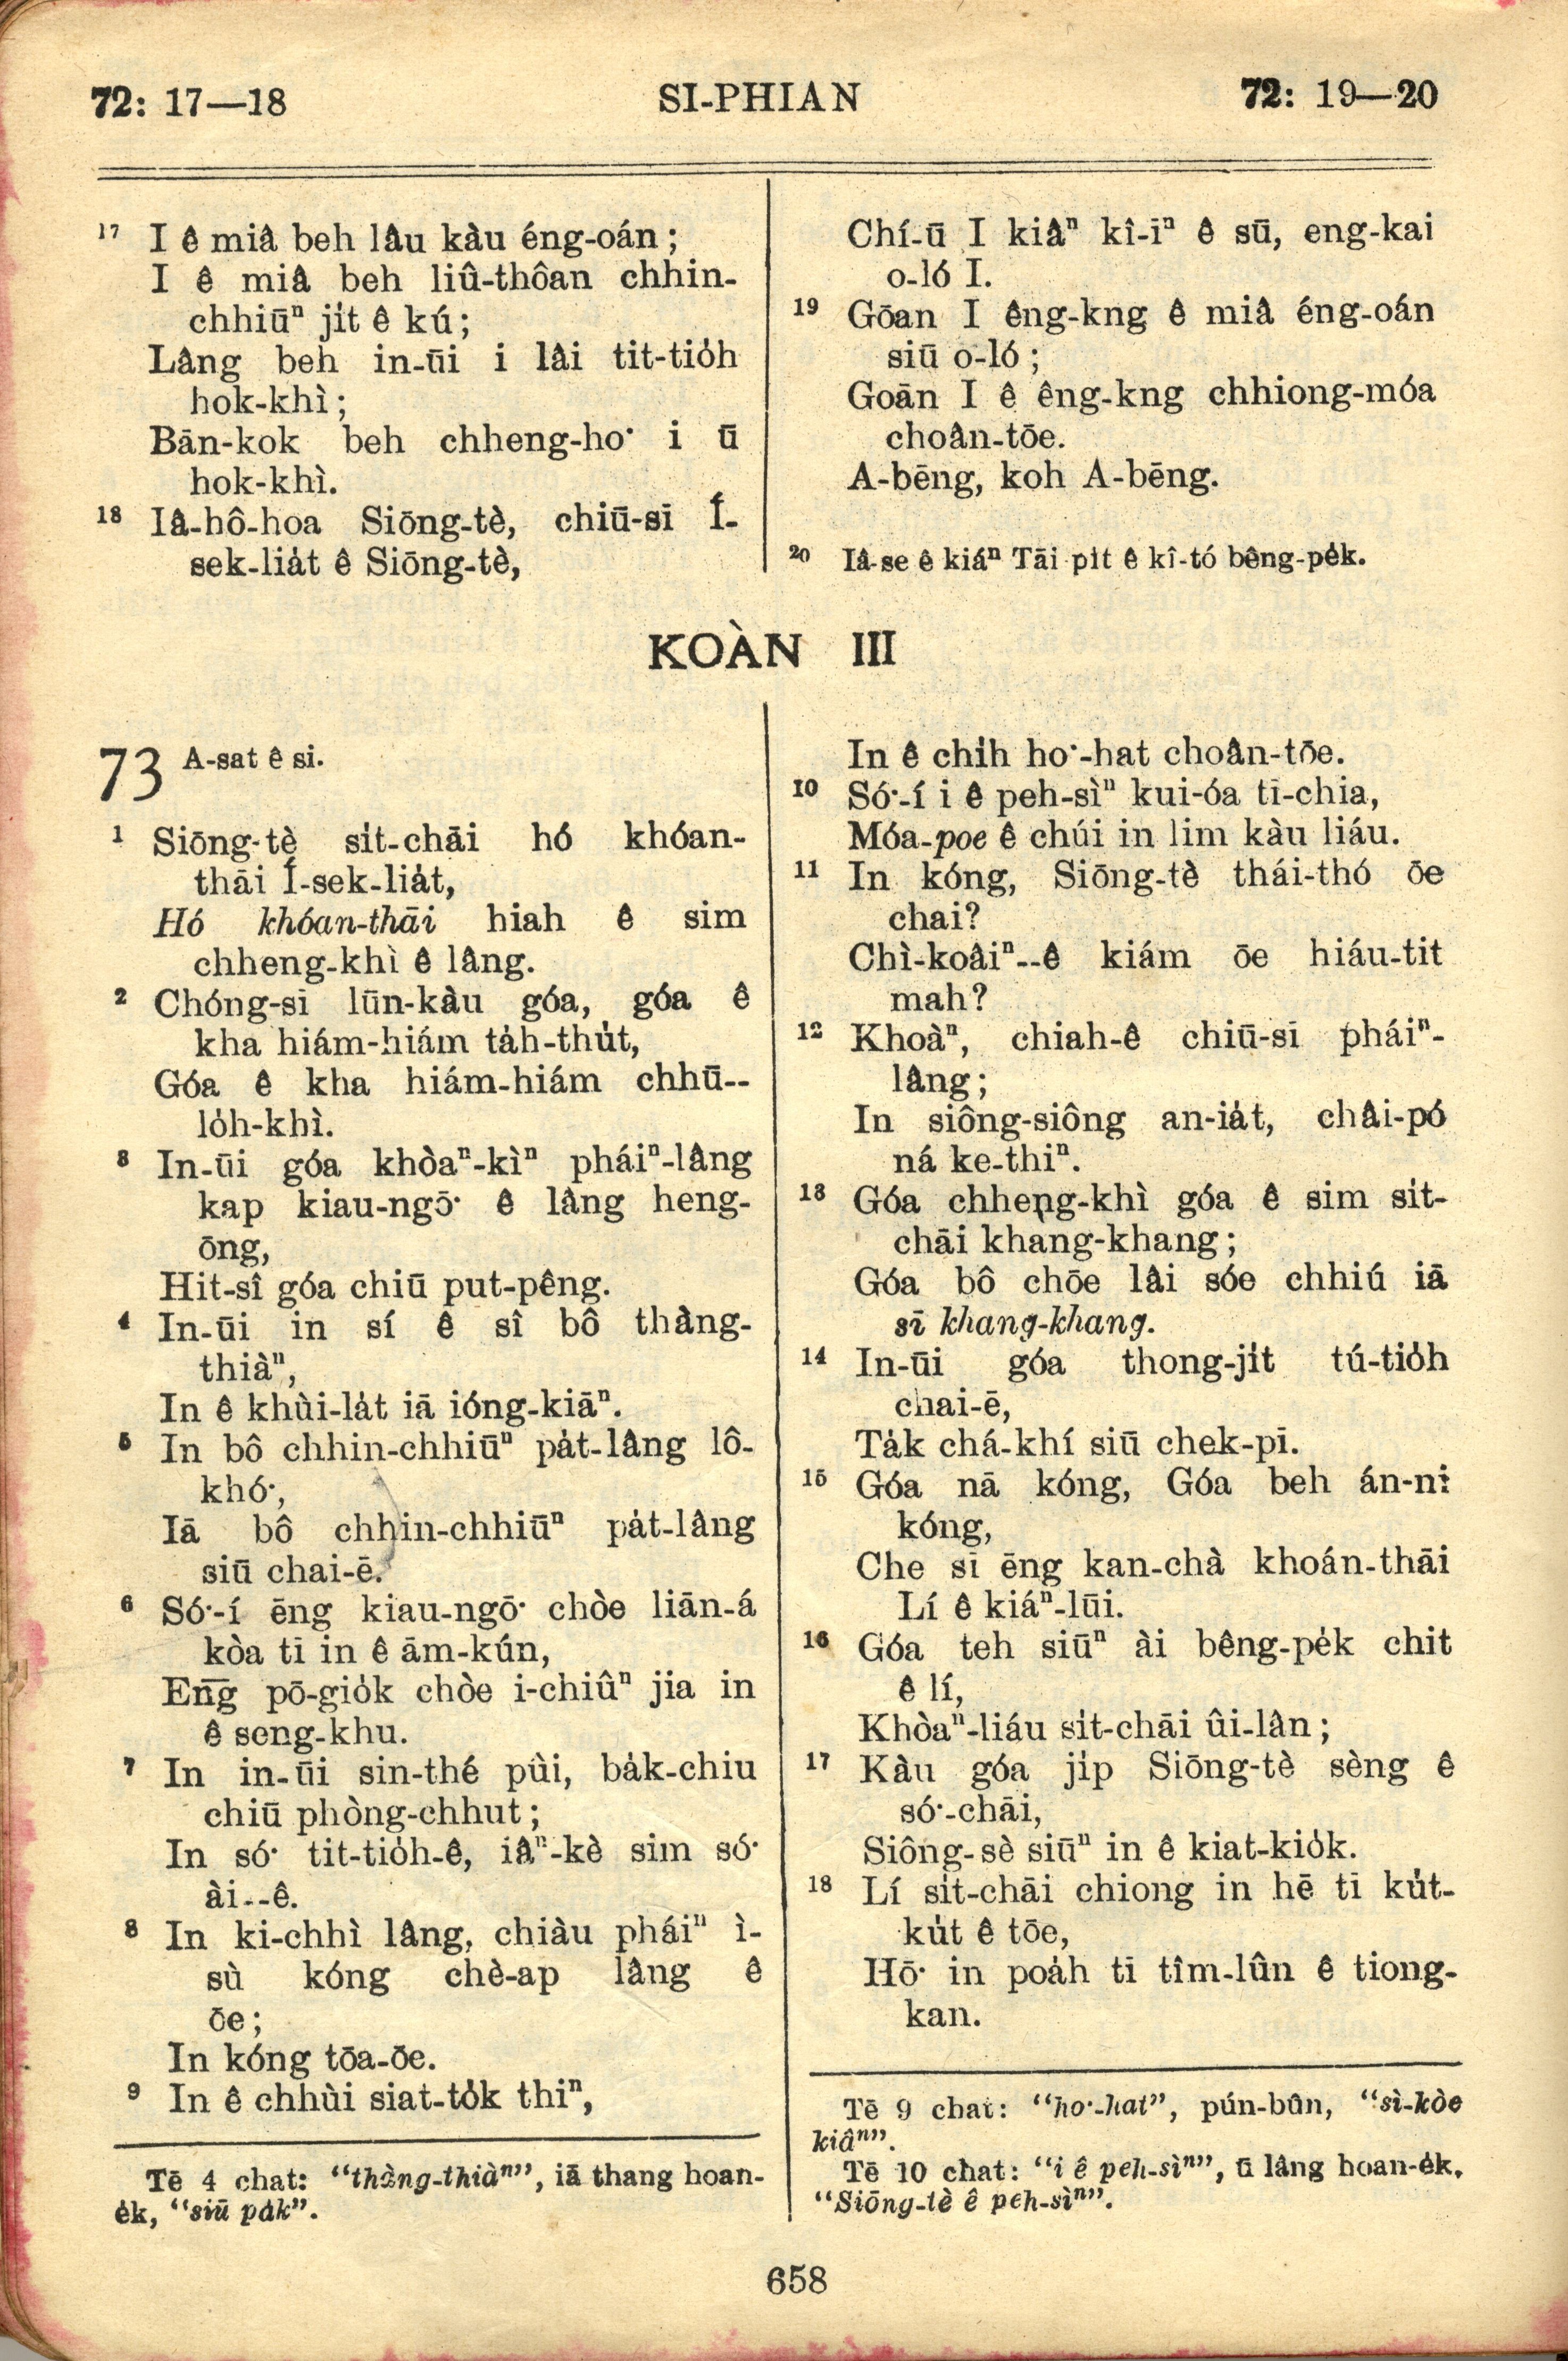 72: 17—18 SI-PHIAN 72: 19—20
17 I ê miâ beh lâu kàu éng-oán;
I ê miâ beh liû-thôan chhin-
chhiūⁿ ji̍t ê kú;
Lâng beh in-ūi i lâi tit-tio̍h
hok-khì;
Bān-kok beh chheng-ho͘ i ū
hok-khì.
18 Iâ-hô-hoa Siōng-tè, chiū-sī Í-
sek-lia̍t ê Siōng-tè,
Chí-ū I kiâⁿ kî-īⁿ ê sū, eng-kai
o-ló I.
19 Gōan I êng-kng ê miâ éng-oán
siū o-ló;
Goān I ê êng-kng chhiong-móa
choân-tōe.
A-bēng, koh A-bēng.
20 Iâ-se ê kiáⁿ Tāi-pit ê kî-tó bêng-pe̍k.
KOÀN III
73 A-sat ê si.
1 Siōng-tè si̍t-chāi hó khóan-
thāi Í-sek-lia̍t,
Hó khóan-thāi hiah ê sim
chheng-khì ê lâng.
2 Chóng-sī lūn-kàu góa, góa ê
kha hiám-hiám ta̍h-thu̍t,
Góa ê kha hiám-hiám chhū--
lo̍h-khì.
3 In-ūi góa khòaⁿ-kìⁿ pháiⁿ-lâng
kap kiau-ngō͘ ê lâng heng-
ōng,
Hit-sî góa chiū put-pêng.
4 In-ūi in sí ê sî bô thàng-
thiàⁿ,
In ê khùi-la̍t iā ióng-kiāⁿ.
5 In bô chhin-chhiūⁿ pa̍t-lâng lô-
khó͘,
Iā bô chhin-chhiūⁿ pa̍t-lâng
siū chai-ē.
6 Só͘-í ēng kiau-ngō͘ chòe liān-á
kòa tī in ê ām-kún,
Ēng pō-gio̍k chòe i-chiûⁿ jia in
ê seng-khu.
7 In in-ūi sin-thé pùi, ba̍k-chiu
chiū phòng-chhut;
In só͘ tit-tio̍h-ê, iâⁿ-kè sim só͘
ài--ê.
8 In ki-chhì lâng, chiàu pháiⁿ ì-
sù kóng chè-ap lâng ê
ōe;
In kóng tōa-ōe.
9 In ê chhùi siat-to̍k thiⁿ,
Tē 4 chat: “thàng-thiàⁿ”, iā thang hoan-
e̍k, “siū pa̍k”.
In ê chi̍h ho͘-hat choân-tōe.
10 Só͘-í i ê peh-sìⁿ kui-óa tī-chia,
Móa-poe ê chúi in lim kàu liáu.
11 In kóng, Siōng-tè thái-thó ōe
chai?
Chì-koâiⁿ--ê kiám ōe hiáu-tit
mah?
12 Khoàⁿ, chiah-ê chiū-sī pháiⁿ-
lâng;
In siông-siông an-ia̍t, châi-pó
ná ke-thiⁿ.
13 Góa chheng-khì góa ê sim si̍t-
chāi khang-khang;
Góa bô chōe lâi sóe chhiú iā
sī khang-khang.
14 In-ūi góa thong-ji̍t tú-tio̍h
chai-ē,
Ta̍k chá-khí siū chek-pī.
15 Góa nā kóng, Góa beh án-ni
kóng,
Che sī ēng kan-chà khoán-thāi
Lí ê kiáⁿ-lūi.
16 Góa teh siūⁿ ài bêng-pe̍k chit
ê lí,
Khòaⁿ-liáu si̍t-chāi ûi-lân;
17 Kàu góa ji̍p Siōng-tè sèng ê
só͘-chāi,
Siông-sè siūⁿ in ê kiat-kio̍k.
18 Lí si̍t-chāi chiong in hē tī ku̍t-
ku̍t ê tōe,
Hō͘ in poa̍h tī tîm-lûn ê tiong-
kan.
Tē 9 chat: “ho͘-hat”, pún-bûn, “sì-kòe
kiâⁿ”.
Tē 10 chat: “i ê peh-sìⁿ”, ū lâng hoan-e̍k,
“Siōng-tè ê peh-sìⁿ”.
658